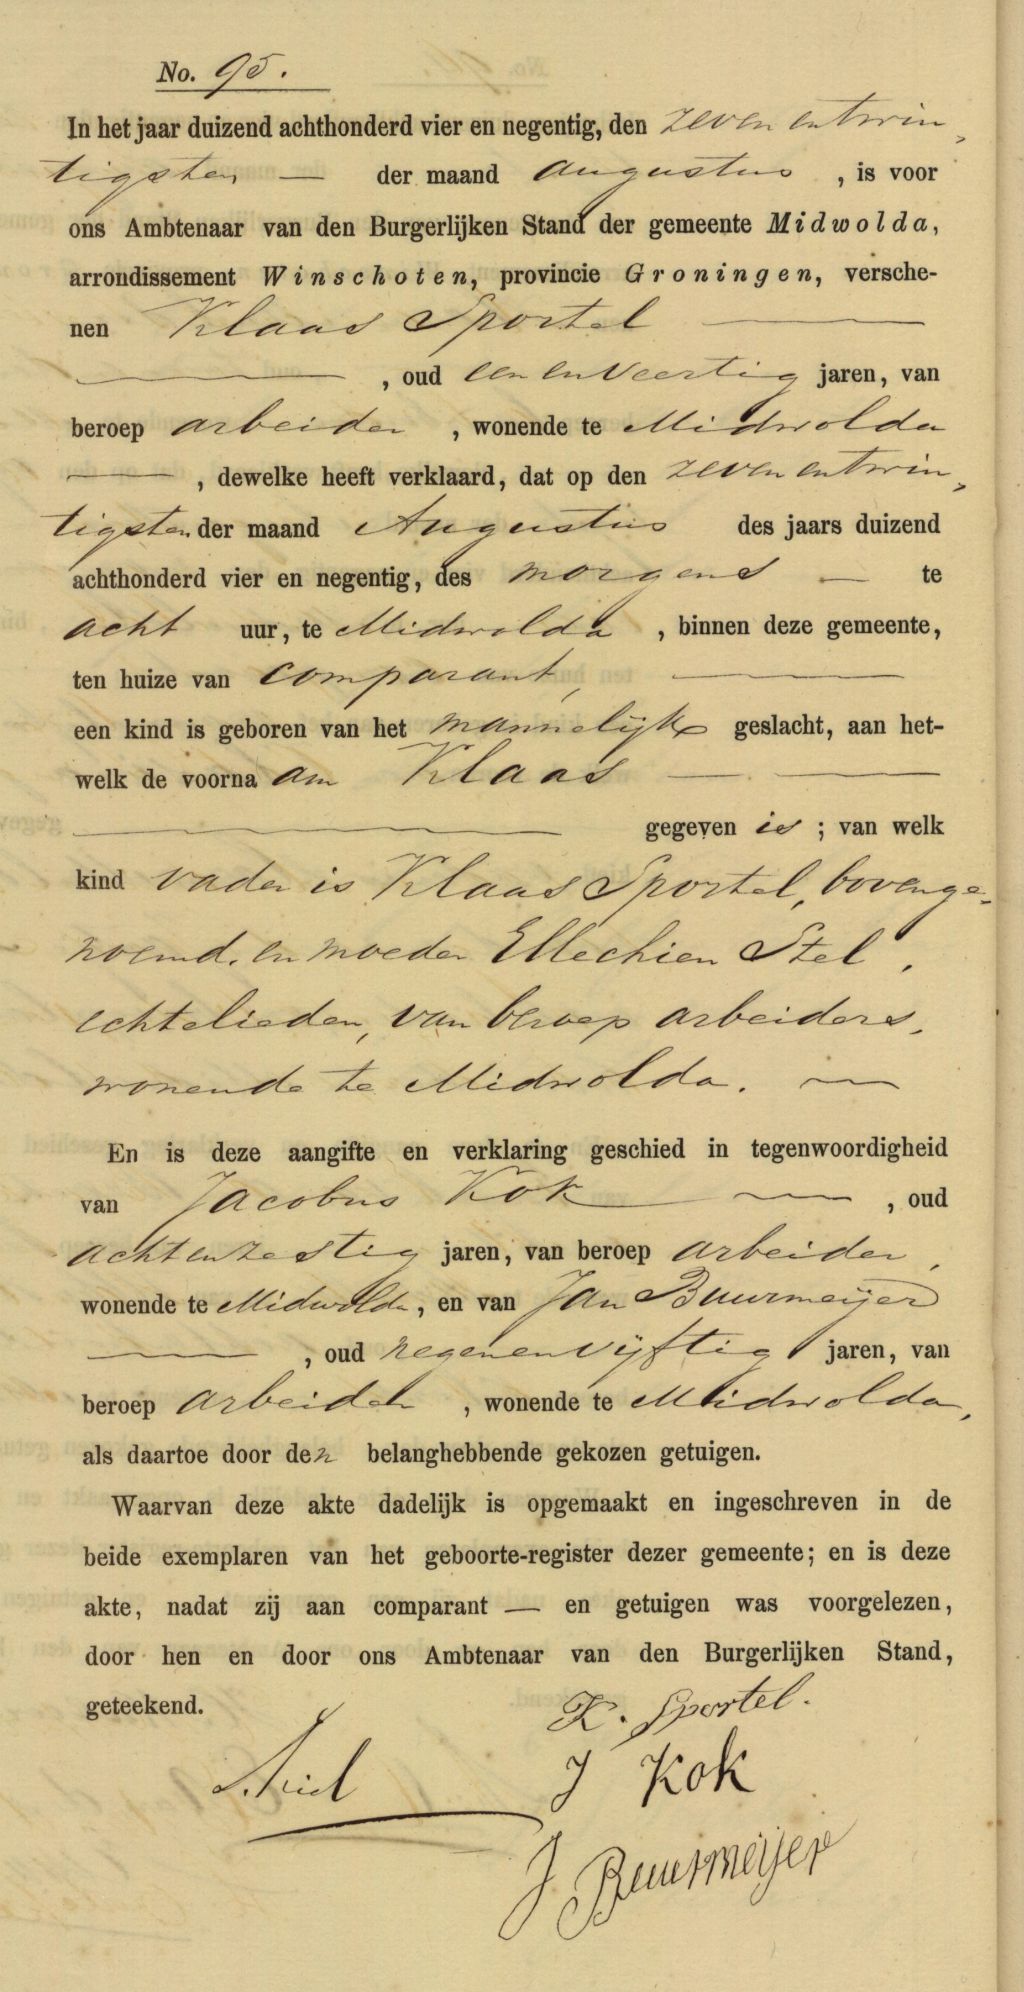 No. 95.
In het jaar duizend achthonderd vier en negentig, den zevenentwin„
tigsten — der maand Augustus , is voor
ons Ambtenaar van den Burgerlijken Stand der gemeente Midwolda,
arrondissement Winschoten, provincie Groningen, versche-
nen Klaas Sportel —
— , oud eenenveertig jaren, van
beroep arbeider , wonende te Midwolda
— , dewelke heeft verklaard, dat op den zevenentwin„
tigsten der maand Augustus des jaars duizend
achthonderd vier en negentig, des morgens — te
acht uur, te Midwolda , binnen deze gemeente,
ten huize van comparant, —
een kind is geboren van het mannelijk geslacht, aan het-
welk de voorna am Klaas — —
— gegeven is ; van welk
kind vader is Klaas Sportel, bovenge„
noemd, en moeder Ellechien Stel,
echtelieden, van beroep arbeiders,
wonende te Midwolda. —
En is deze aangifte en verklaring geschied in tegenwoordigheid
van Jacobus Kok — , oud
achtenzestig jaren, van beroep arbeider,
wonende te Midwolda, en van Jan Buurmeijer
— , oud negenenvijftig jaren, van
beroep arbeider , wonende te Midwolda,
als daartoe door den belanghebbende gekozen getuigen.
Waarvan deze akte dadelijk is opgemaakt en ingeschreven in de
beide exemplaren van het geboorte-register dezer gemeente; en is deze
akte, nadat zij aan comparant — en getuigen was voorgelezen,
door hen en door ons Ambtenaar van den Burgerlijken Stand,
geteekend.
K. Sportel.
J Kok
J Buurmeijer